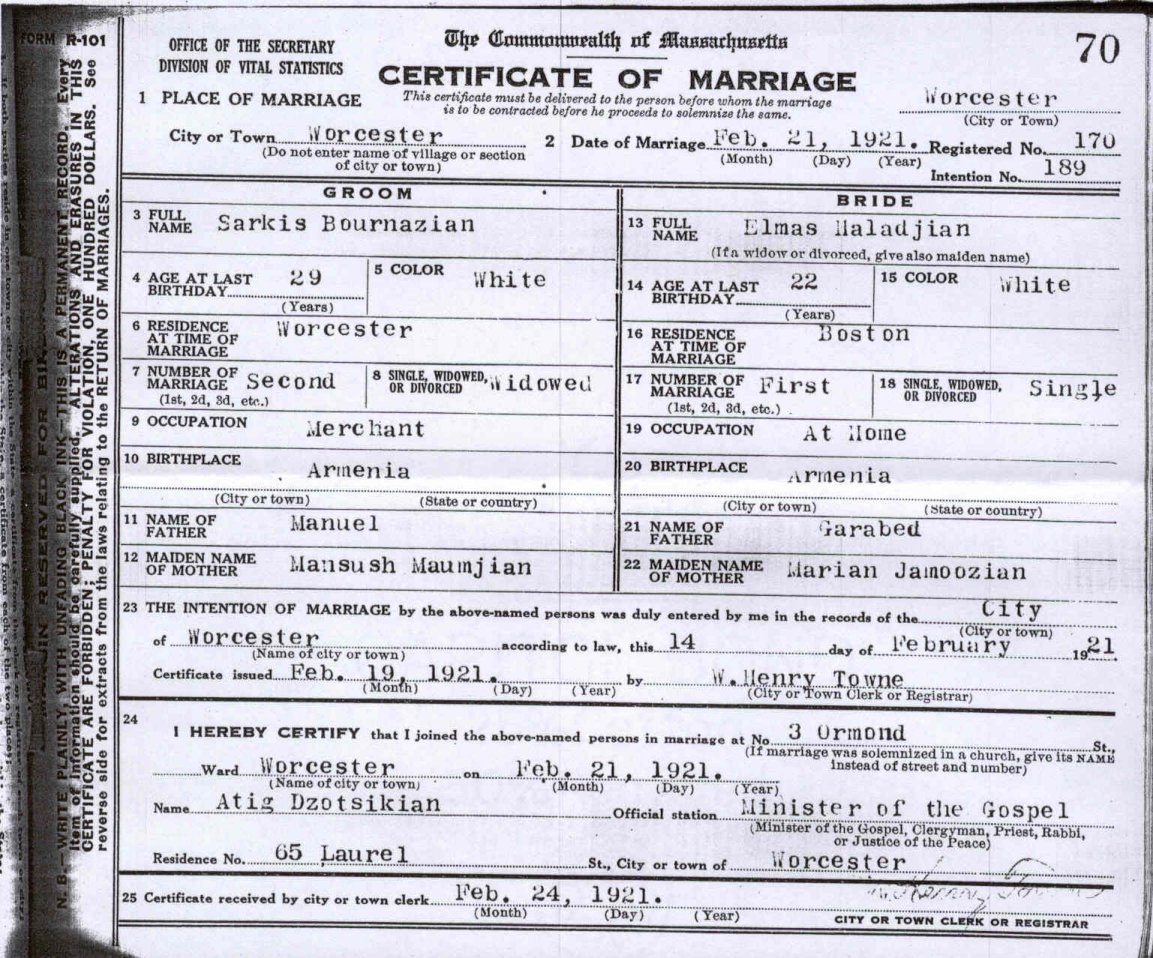 FORM R-101
OFFICE OF THE SECRETARY
DIVISION OF VITAL STATISTICS
The Commonwealth of Massachusetts
70
CERTIFICATE OF MARRIAGE
This certificate must be delivered to the person before whom the marriage
is to be contracted before he proceeds to solemnize the same.
1 PLACE OF MARRIAGE
Worcester
(City or Town)
City or Town Worcester
(Do not enter name of village or section
of city or town)
2 Date of Marriage Feb. 21, 1921.
(Month) (Day) (Year)
Registered No. 170
Intention No. 189
GROOM
3 FULL NAME Sarkis Bournazian
4 AGE AT LAST BIRTHDAY 29
(Years)
5 COLOR White
6 RESIDENCE AT TIME OF MARRIAGE Worcester
7 NUMBER OF MARRIAGE Second
(1st, 2d, 3d, etc.)
8 SINGLE, WIDOWED, OR DIVORCED Widowed
9 OCCUPATION Merchant
10 BIRTHPLACE Armenia
(City or town) (State or country)
11 NAME OF FATHER Manuel
12 MAIDEN NAME OF MOTHER Mansush Maumjian
BRIDE
13 FULL NAME Elmas Maladjian
(If a widow or divorced, give also maiden name)
14 AGE AT LAST BIRTHDAY 22
(Years)
15 COLOR White
16 RESIDENCE AT TIME OF MARRIAGE Boston
17 NUMBER OF MARRIAGE First
(1st, 2d, 3d, etc.)
18 SINGLE, WIDOWED, OR DIVORCED Single
19 OCCUPATION At Home
20 BIRTHPLACE Armenia
(City or town) (State or country)
21 NAME OF FATHER Garabed
22 MAIDEN NAME OF MOTHER Marian Jamoozian
23 THE INTENTION OF MARRIAGE by the above-named persons was duly entered by me in the records of the City
(City or town)
of Worcester according to law, this 14 day of February 1921
(Name of city or town)
Certificate issued Feb. 19, 1921. by W. Henry Towne
(Month) (Day) (Year) (City or Town Clerk or Registrar)
24
I HEREBY CERTIFY that I joined the above-named persons in marriage at No. 3 Ormond St.,
(If marriage was solemnized in a church, give its NAME
instead of street and number)
Ward Worcester on Feb. 21, 1921.
(Name of city or town) (Month) (Day) (Year)
Name Atig Dzotsikian Official station Minister of the Gospel
(Minister of the Gospel, Clergyman, Priest, Rabbi,
or Justice of the Peace)
Residence No. 65 Laurel St., City or town of Worcester
25 Certificate received by city or town clerk Feb. 24, 1921.
(Month) (Day) (Year)
CITY OR TOWN CLERK OR REGISTRAR
N. B.—WRITE PLAINLY, WITH UNFADING BLACK INK—THIS IS A PERMANENT RECORD. Every
item of information should be carefully supplied. ALTERATIONS AND ERASURES IN THIS
CERTIFICATE ARE FORBIDDEN; PENALTY FOR VIOLATION, ONE HUNDRED DOLLARS. See
reverse side for extracts from the laws relating to the RETURN OF MARRIAGES.